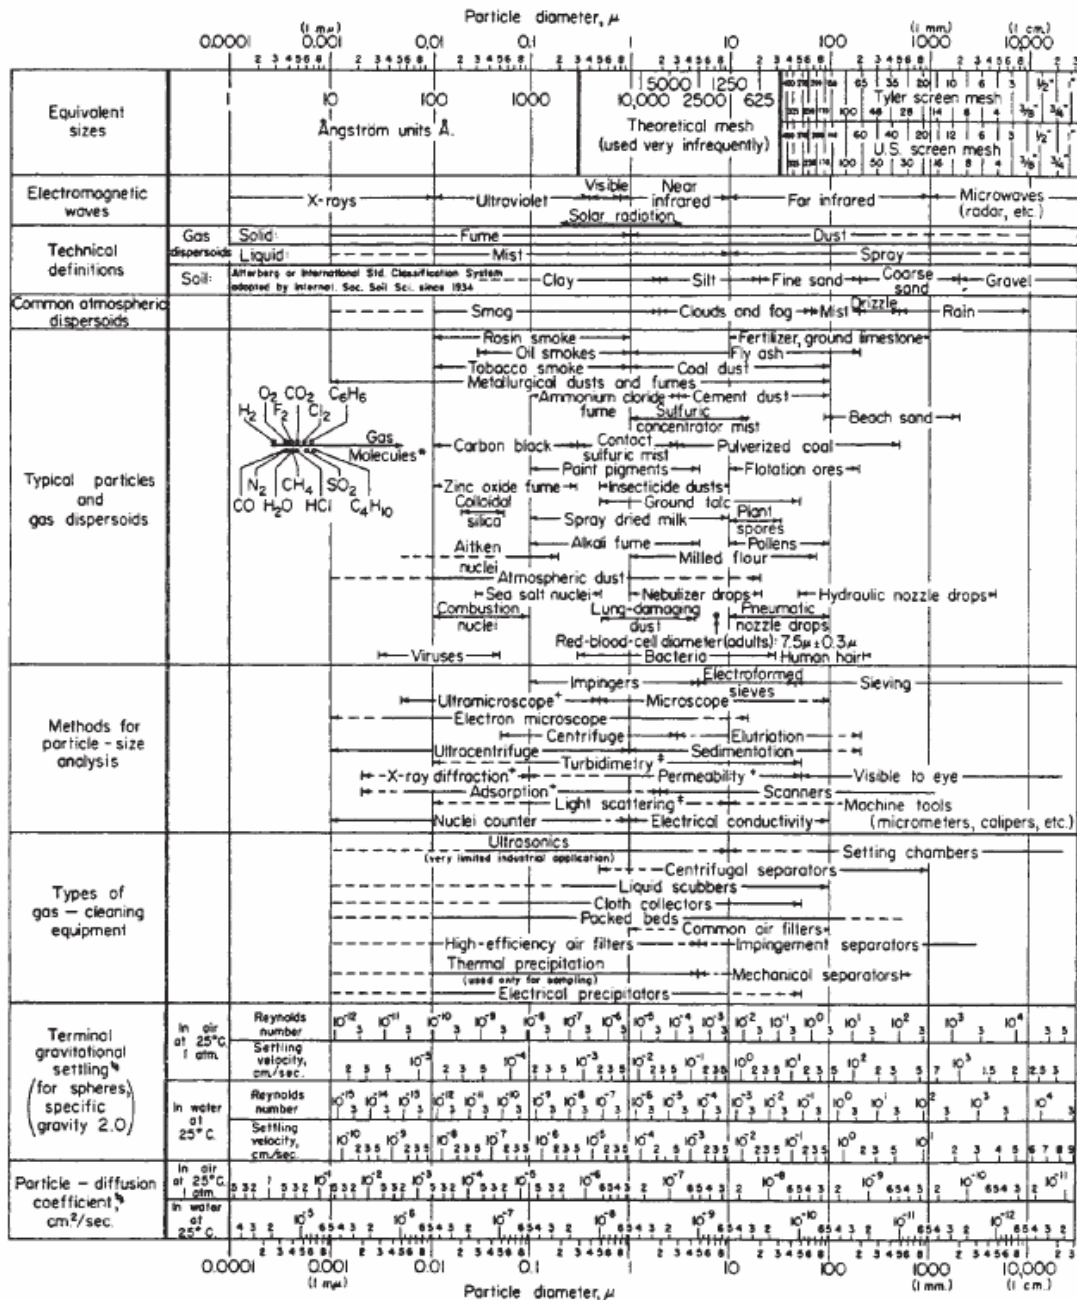 Particle diameter, μ
(1 mμ) (1 mm.) (1 cm.)
0.0001 0.001 0.01 0.1 1 10 100 1000 10,000
Equivalent sizes
1 10 100 1000
Ångström units Å.
5000 1250
10,000 2500 625
Theoretical mesh
(used very infrequently)
65 35 20 10 6 3 1/2" 1"
Tyler screen mesh
100 48 28 14 8 4 3/8" 3/4"
60 40 20 12 6 3 1/2" 1"
U.S. screen mesh
100 50 30 16 8 4 3/8" 3/4"
Electromagnetic waves
X-rays
Ultraviolet
Visible
Near infrared
Far infrared
Microwaves
(radar, etc.)
Solar radiation
Technical definitions
Gas dispersoids
Solid: Fume Dust
Liquid: Mist Spray
Soil: Atterberg or International Std. Classification System
adopted by Internat. Soc. Soil Sci. since 1934
Clay Silt Fine sand Coarse sand Gravel
Common atmospheric dispersoids
Smog Clouds and fog Mist Drizzle Rain
Typical particles and gas dispersoids
Rosin smoke Fertilizer, ground limestone
Oil smokes Fly ash
Tobacco smoke Coal dust
Metallurgical dusts and fumes
Ammonium cloride fume Cement dust
Sulfuric concentrator mist Beach sand
O2 CO2 C6H6
H2 F2 Cl2
Gas Molecules*
N2 CH4 SO2
CO H2O HCl C4H10
Carbon black Contact sulfuric mist Pulverized coal
Paint pigments Flotation ores
Zinc oxide fume Insecticide dusts
Colloidal silica Ground talc
Spray dried milk Plant spores
Alkali fume Pollens
Aitken nuclei Milled flour
Atmospheric dust
Sea salt nuclei Nebulizer drops Hydraulic nozzle drops
Combustion nuclei Lung-damaging dust Pneumatic nozzle drops
Red-blood-cell diameter (adults): 7.5μ±0.3μ
Viruses Bacteria Human hair
Methods for particle-size analysis
Impingers Electroformed sieves Sieving
Ultramicroscope+ Microscope
Electron microscope
Centrifuge Elutriation
Ultracentrifuge Sedimentation
Turbidimetry‡
X-ray diffraction+ Permeability+ Visible to eye
Adsorption+ Scanners
Light scattering‡ Machine tools
Nuclei counter Electrical conductivity (micrometers, calipers, etc.)
Types of gas-cleaning equipment
Ultrasonics Settling chambers
(very limited industrial application)
Centrifugal separators
Liquid scubbers
Cloth collectors
Packed beds
Common air filters
High-efficiency air filters Impingement separators
Thermal precipitation Mechanical separators
(used only for sampling)
Electrical precipitators
Terminal gravitational settling
(for spheres, specific gravity 2.0)
In air at 25°C. 1 atm.
Reynolds number 10-12 10-11 10-10 10-9 10-8 10-7 10-6 10-5 10-4 10-3 10-2 10-1 100 101 102 103 104
Settling velocity, cm./sec. 10-5 10-4 10-3 10-2 10-1 100 101 102 103
In water at 25°C.
Reynolds number 10-15 10-14 10-13 10-12 10-11 10-10 10-9 10-8 10-7 10-6 10-5 10-4 10-3 10-2 10-1 100 101 102 103 104
Settling velocity, cm./sec. 10-10 10-9 10-8 10-7 10-6 10-5 10-4 10-3 10-2 10-1 100 101
Particle-diffusion coefficient, cm²/sec.
In air at 25°C. 1 atm. 10-1 10-2 10-3 10-4 10-5 10-6 10-7 10-8 10-9 10-10 10-11
In water at 25°C. 10-5 10-6 10-7 10-8 10-9 10-10 10-11 10-12
0.0001 0.001 0.01 0.1 1 10 100 1000 10,000
(1 mμ) (1 mm.) (1 cm.)
Particle diameter, μ